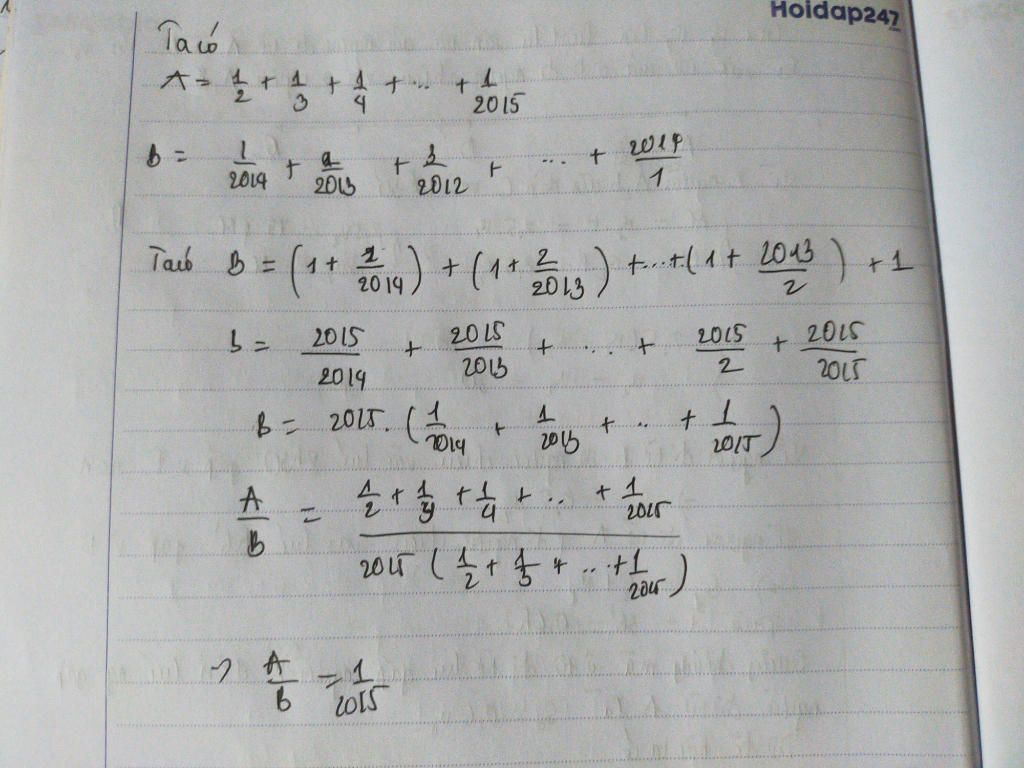 Hoidap247
Ta có
A = 1/2 + 1/3 + 1/4 + ... + 1/2015
B = 1/2014 + 2/2013 + 3/2012 + ... + 2014/1
Ta có B = (1 + 1/2014) + (1 + 2/2013) + ... + (1 + 2013/2) + 1
B = 2015/2014 + 2015/2013 + ... + 2015/2 + 2015/2015
B = 2015. (1/2014 + 1/2013 + .. + 1/2015)
A/B = (1/2 + 1/3 + 1/4 + .. + 1/2015) / 2015 (1/2 + 1/3 + ... + 1/2015)
→ A/B = 1/2015